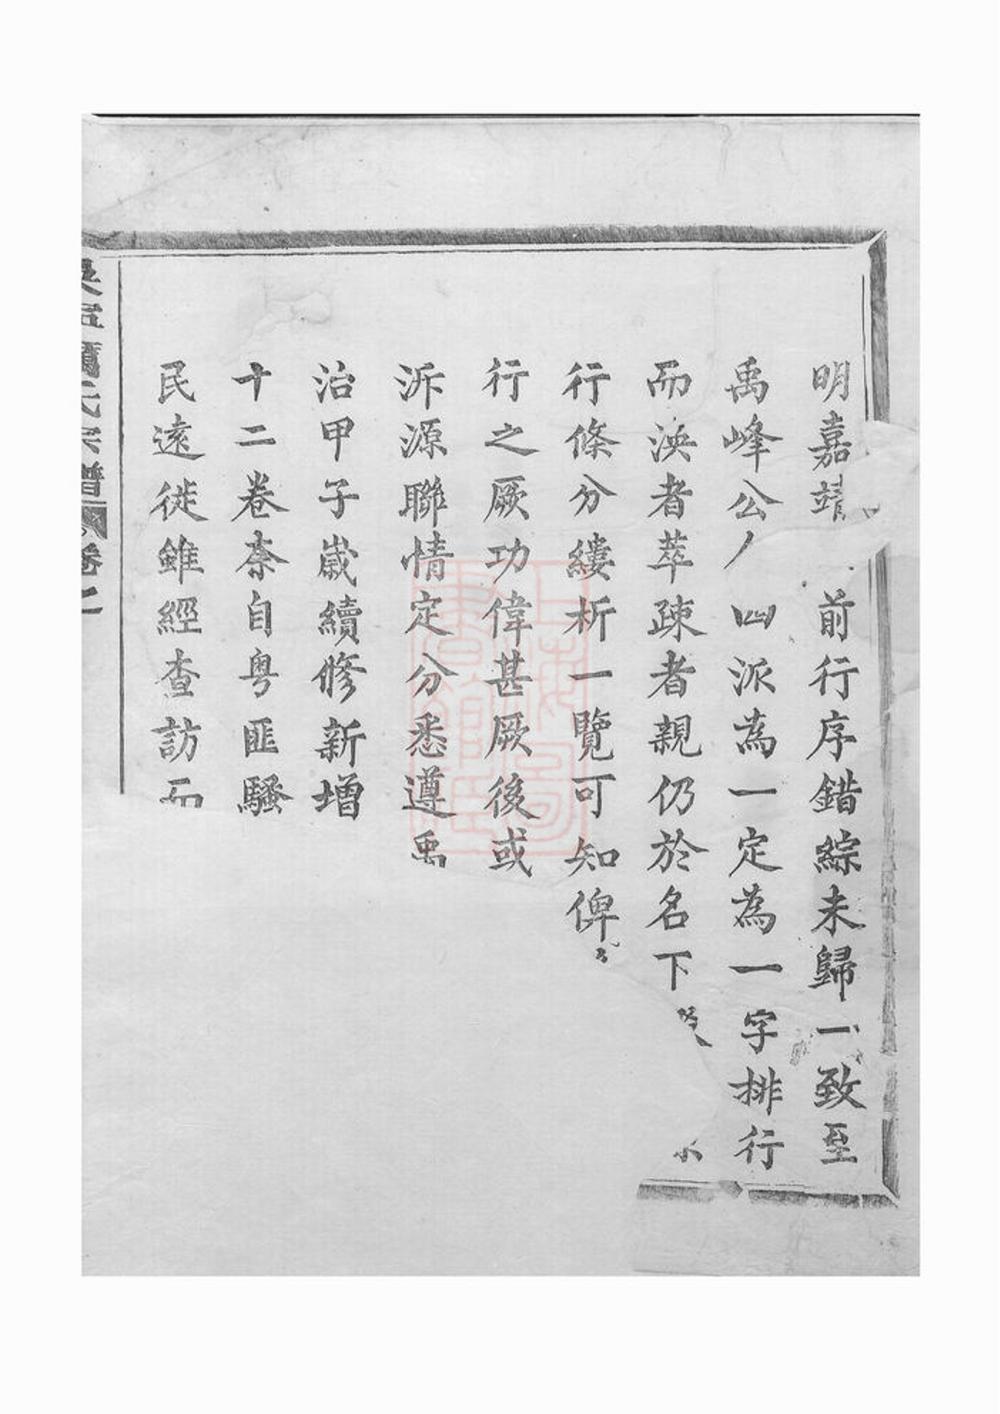 明嘉靖前行序錯綜未歸一致至
禹峰公四派為一定為一字排行
而渙者萃疎者親仍於名下
行條分縷析一覽可知俾
行之厥功偉甚厥後或
泝源聯情定分悉遵禹
治甲子歲續修新增
十二卷柰自粵匪騷
民遠徙雖經查訪而
氏宗譜 卷
上海圖書館藏